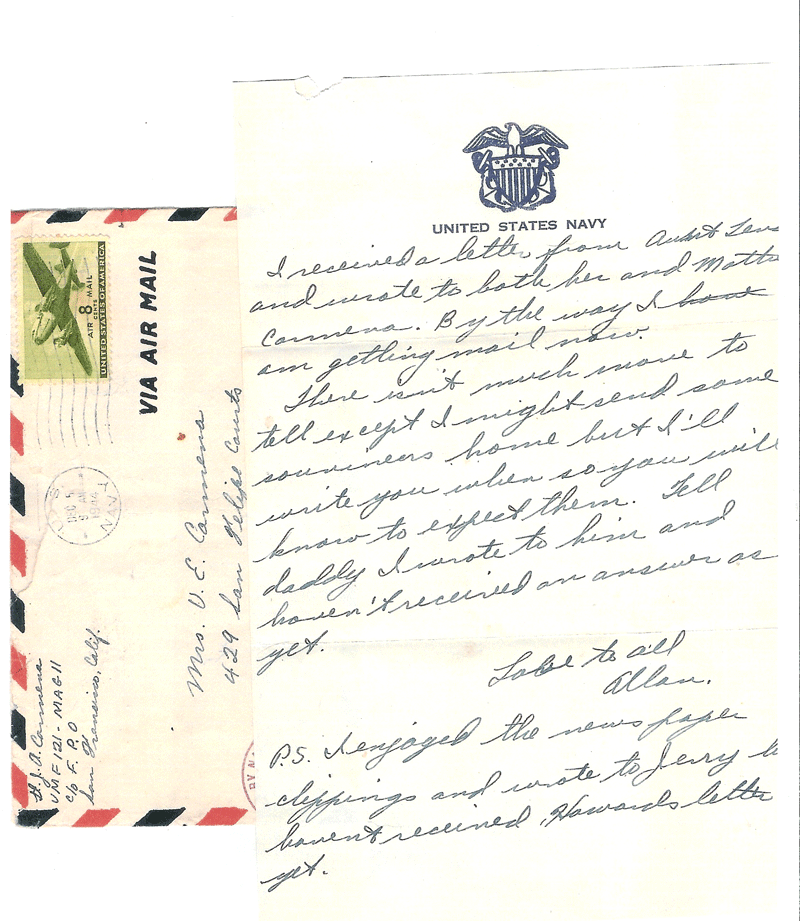 UNITED STATES NAVY
I received a letter from Aunt
and wrote to both her and
Carmena. By the way I have
am getting mail now.
There isn't much more to
tell except I might send some
souvineers home but I'll
write you when so you will
know to expect them. Tell
daddy I wrote to him and
haven't received an answer as
yet.
Love to all
Allan.
P.S. I enjoyed the news paper
clippings and wrote to Jerry
haven't received Howards letter
yet.
UNITED STATES OF AMERICA
AIR 8 CENTS MAIL
VIA AIR MAIL
U.S. NAVY
DEC 5
9 AM
1944
Mrs. V. E. Carmena
429 San Felipe Courts
J. A. Carmena
VMF 121 - MAG 11
c/o F. P. O
San Francisco, Calif.